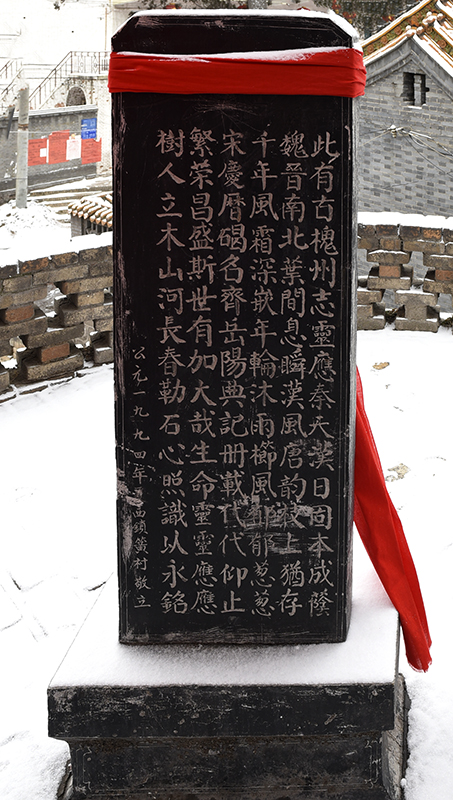 此有古槐州志靈應秦天漢日同本成蔭
魏晉南北葉間息瞬漢風唐韵枝上猶存
千年風霜深嵌年輪沐雨櫛風郁郁葱葱
宋慶曆碣名齊岳陽典記册載代代仰止
繁荣昌盛斯世有加大哉生命靈靈應應
樹人立木山河長春勒石心照識以永銘
公元一九九四年 西鎖簧村敬立